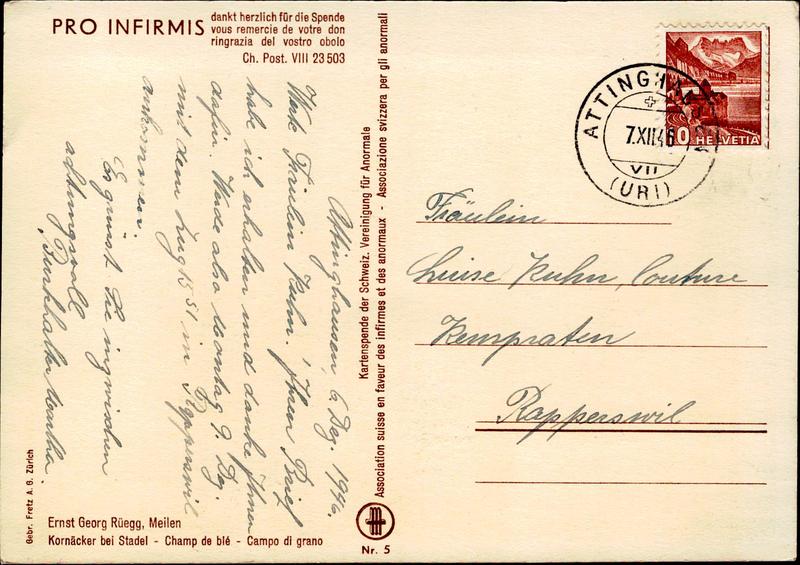 PRO INFIRMIS
dankt herzlich für die Spende
vous remercie de votre don
ringrazia del vostro obolo
Ch. Post. VIII 23 503
Attinghausen 6. Dez. 1946.
Werte Fräulein Kuhn! Ihren Brief
habe ich erhalten und danke Ihnen
dafür. Werde also Montag 9. Dez.
mit dem Zug 15 51 in Rapperswil
ankommen.
Es grüsst Sie inzwischen
achtungsvoll
Martha
Ernst Georg Rüegg, Meilen
Kornäcker bei Stadel - Champ de blé - Campo di grano
Gebr. Fretz A. G. Zürich
Kartenspende der Schweiz. Vereinigung für Anormale
Association suisse en faveur des infirmes et des anormaux - Associazione svizzera per gli anormali
Nr. 5
ATTINGHAUSEN
7.XII.46
VII
(URI)
HELVETIA
Fräulein
Luise Kuhn, Couture
Kempraten
Rapperswil